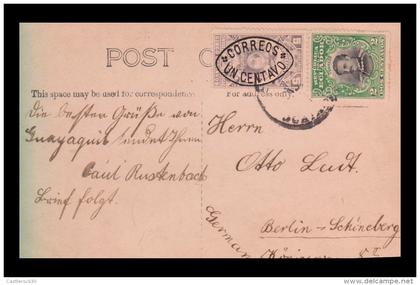 POST
CORREOS
UN CENTAVO
ECUADOR
This space may be used for correspondence
For address only.
Die besten Grüße von
Guayaquil sendet Ihnen
Paul Rustenbach
Brief folgt.
Herrn
Otto Ludt.
Berlin-Schöneberg
German